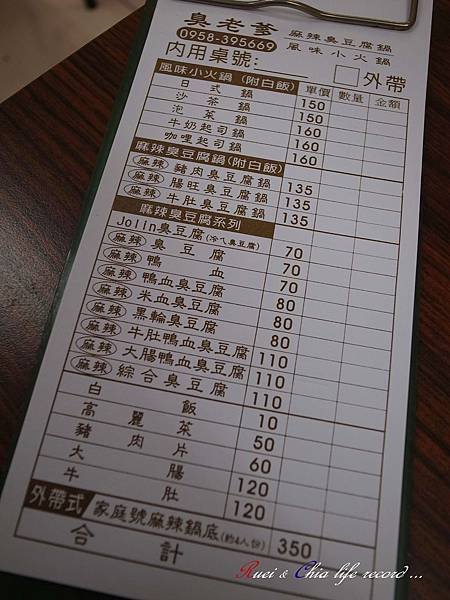 臭老爹 麻辣臭豆腐鍋
0958-395669 風味小火鍋
內用桌號： 外帶
風味小火鍋(附白飯) 單價 數量 金額
日式鍋 150
沙茶鍋 150
泡菜鍋 160
牛奶起司鍋 160
咖哩起司鍋 160
麻辣臭豆腐鍋(附白飯)
麻辣 豬肉臭豆腐鍋 135
麻辣 腸旺臭豆腐鍋 135
麻辣 牛肚臭豆腐鍋 135
麻辣臭豆腐系列
Jolin臭豆腐(冷ㄟ臭豆腐) 70
麻辣 臭豆腐 70
麻辣 鴨血 70
麻辣 鴨血臭豆腐 80
麻辣 米血臭豆腐 80
麻辣 黑輪臭豆腐 80
麻辣 牛肚鴨血臭豆腐 110
麻辣 大腸鴨血臭豆腐 110
麻辣 綜合臭豆腐 110
白飯 10
高麗菜 50
豬肉片 60
大腸 120
牛肚 120
外帶式 家庭號麻辣鍋底(約4人份) 350
合計
Ruei & Chia life record ...